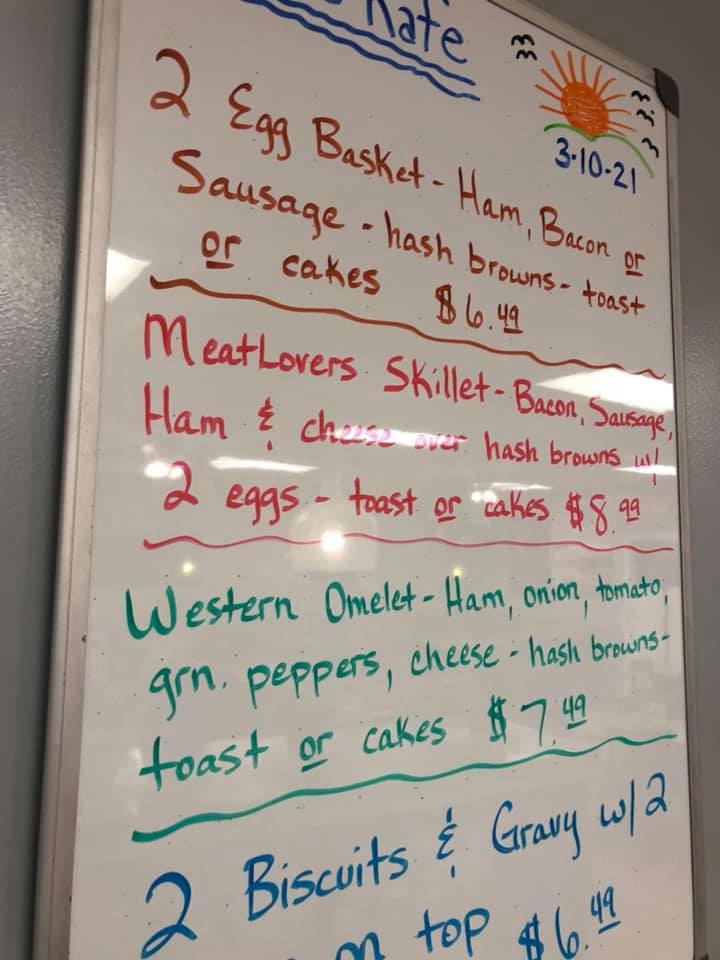 Kate
3-10-21
2 Egg Basket - Ham, Bacon or
Sausage - hash browns - toast
or cakes $6.49
MeatLovers Skillet - Bacon, Sausage,
Ham & cheese over hash browns w/
2 eggs - toast or cakes $8.99
Western Omelet - Ham, onion, tomato,
grn. peppers, cheese - hash browns -
toast or cakes $7.49
2 Biscuits & Gravy w/2
on top $6.49